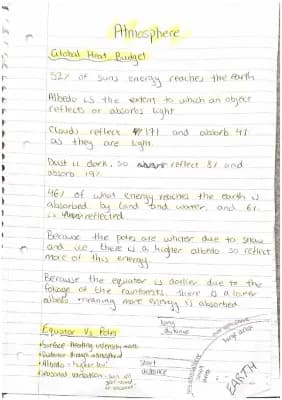 Atmosphere
Global Heat Budget
52% of suns energy reaches the earth
Albedo is the extent to which an object
reflects or absorbs light
Clouds reflect 17% and absorb 4%
as they are light.
Dust is dark, so reflect 8% and
absorb 19%
46% of what energy reaches the earth is
absorbed by land and water, and 6%
is reflected.
Because the poles are whiter due to snow
and ice, there is a higher albedo so reflect
more of this energy.
Because the equator is darker due to the
foliage of the rainforests, there is a lower
albedo - meaning more energy is absorbed.
Equator Vs Poles
Surface heating intensity
Distance through atmosphere
Albedo - higher/low
Seasonal variation - sun
long
distance
short
distance
large area
EARTH